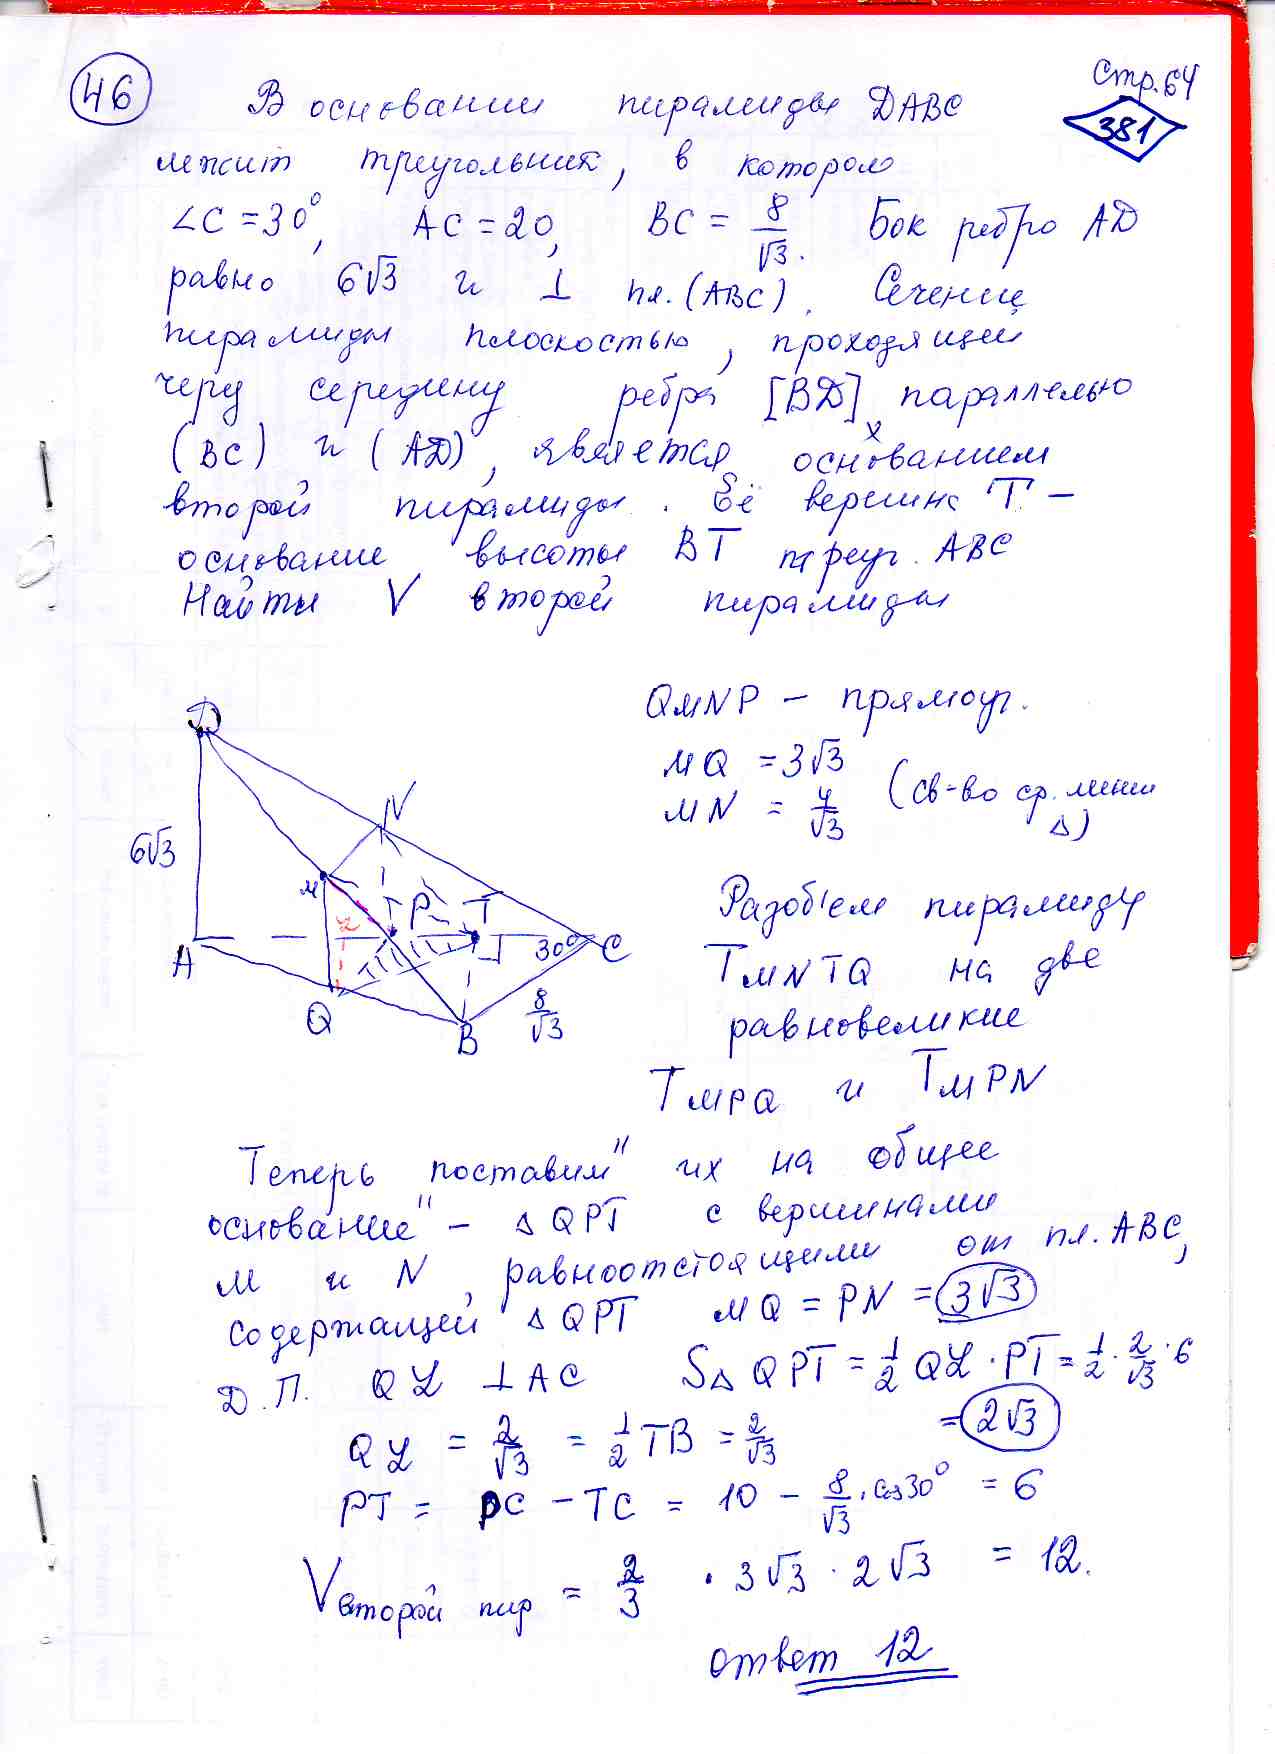 46
Стр. 64
381
В основании пирамиды DABC
лежит треугольник, в котором
∠C = 30°, AC = 20, BC = 8/√3. Бок ребро AD
равно 6√3 и ⊥ пл. (ABC). Сечение
пирамиды плоскостью, проходящей
через середину ребра [BD] параллельно
(BC) и (AD), является основанием
второй пирамиды. Её вершина T –
основание высоты BT треуг. ABC
Найти V второй пирамиды
QMNP – прямоуг.
MQ = 3√3
MN = 4/√3 (св-во ср. линии Δ)
D
N
6√3
M
P
T
z
A
30°
C
Q
8/√3
B
Разобьем пирамиду
TMNTQ на две
равновеликие
TMPQ и TMPN
Теперь поставим" их на общее
основание" – Δ QPT с вершинами
M и N, равноотстоящими от пл. ABC,
содержащей Δ QPT MQ = PN = 3√3
Д.П. QZ ⊥ AC SΔ QPT = 1/2 QZ · PT = 1/2 · 2/√3 · 6
= 2√3
QZ = 2/√3 = 1/2 TB = 2/√3
PT = PC – TC = 10 – 8/√3 · cos 30° = 6
V второй пир = 2/3 · 3√3 · 2√3 = 12.
ответ 12